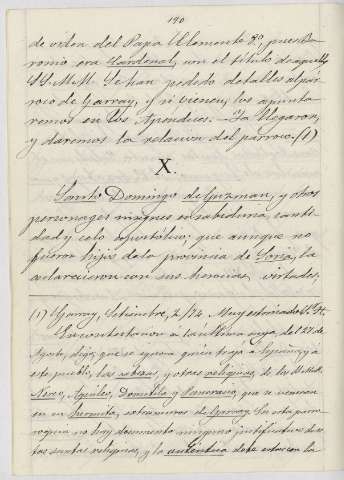 190
de orden del Papa Clemente 8º, pues Ba-
ronio era Cardenal, con el título de aquellos
SS. M.M. Se han pedido detalles al pár-
roco de Garray, y si vienen, los apunta-
remos en los Apendices. — Ya llegaron,
y daremos la relacion del párroco. (1)
X.
Santo Domingo de Guzman, y otros
personages insignes en sabiduría, santi-
dad y celo apostólico; que aunque no
fueron hijos de la provincia de Soria, la
esclarecieron con sus heroicas virtudes,
(1) Garray, Setiembre, 2/74. Muy estimado
En contestacion á la última suya, del 27 de
Agosto, digo, que se ignora quien trajo á España, y á
este pueblo, las cabezas, y otras reliquias, de los
Nereo, Aquileo, Domitila y Pancracio, que se veneran
en su hermita, extramuros de Garray. En esta parro-
quia no hay documento ninguno justificativo de es-
tas santas reliquias, y la auténtica debe estar con la